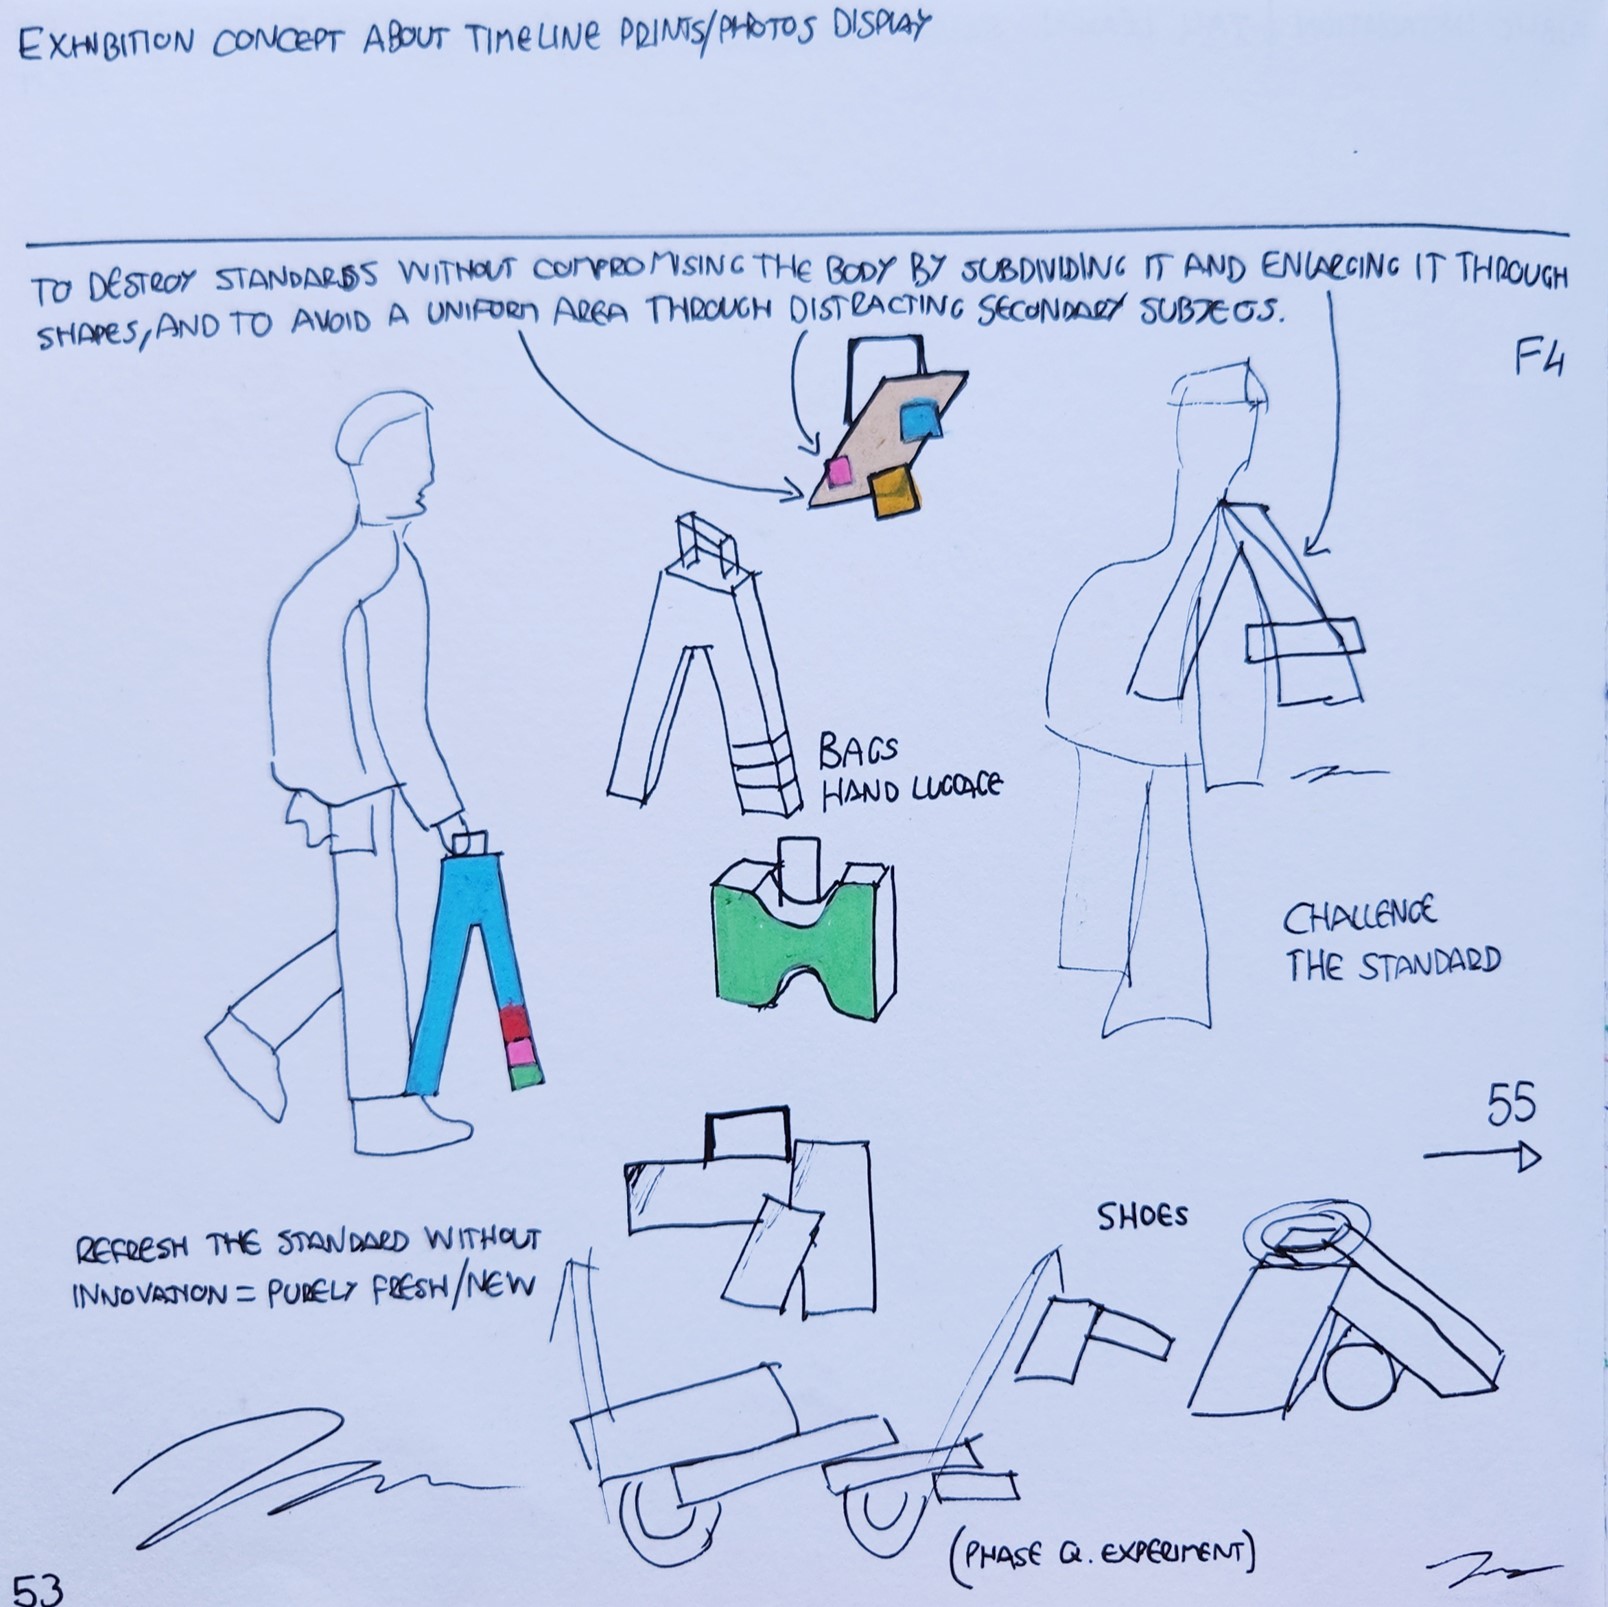 EXHIBITION CONCEPT ABOUT TIMELINE PRINTS/PHOTOS DISPLAY
TO DESTROY STANDARDS WITHOUT COMPROMISING THE BODY BY SUBDIVIDING IT AND ENLARGING IT THROUGH
SHAPES, AND TO AVOID A UNIFORM AREA THROUGH DISTRACTING SECONDARY SUBJECTS.
F4
BAGS
HAND LUGGAGE
CHALLENGE
THE STANDARD
55
SHOES
REFRESH THE STANDARD WITHOUT
INNOVATION = PURELY FRESH/NEW
(PHASE Q. EXPERIMENT)
53